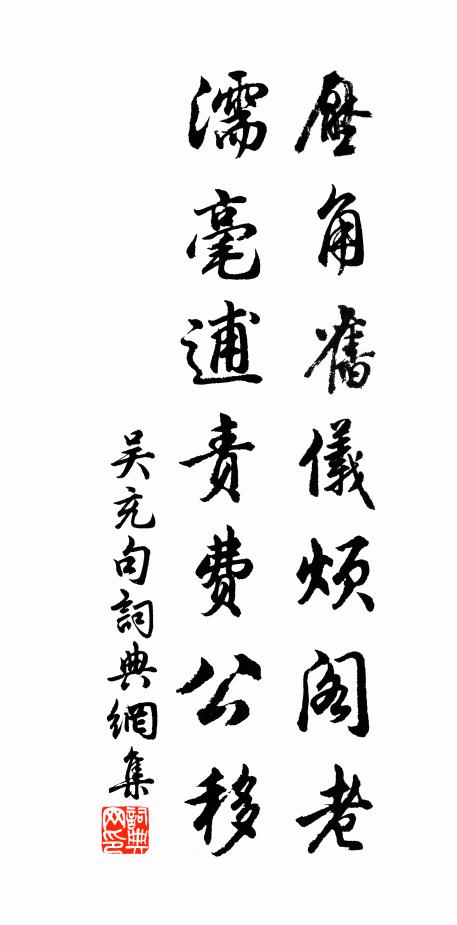 壓角舊儀煩閣老
濡毫逋責費公移
吴充句詞典網集
詞典网印